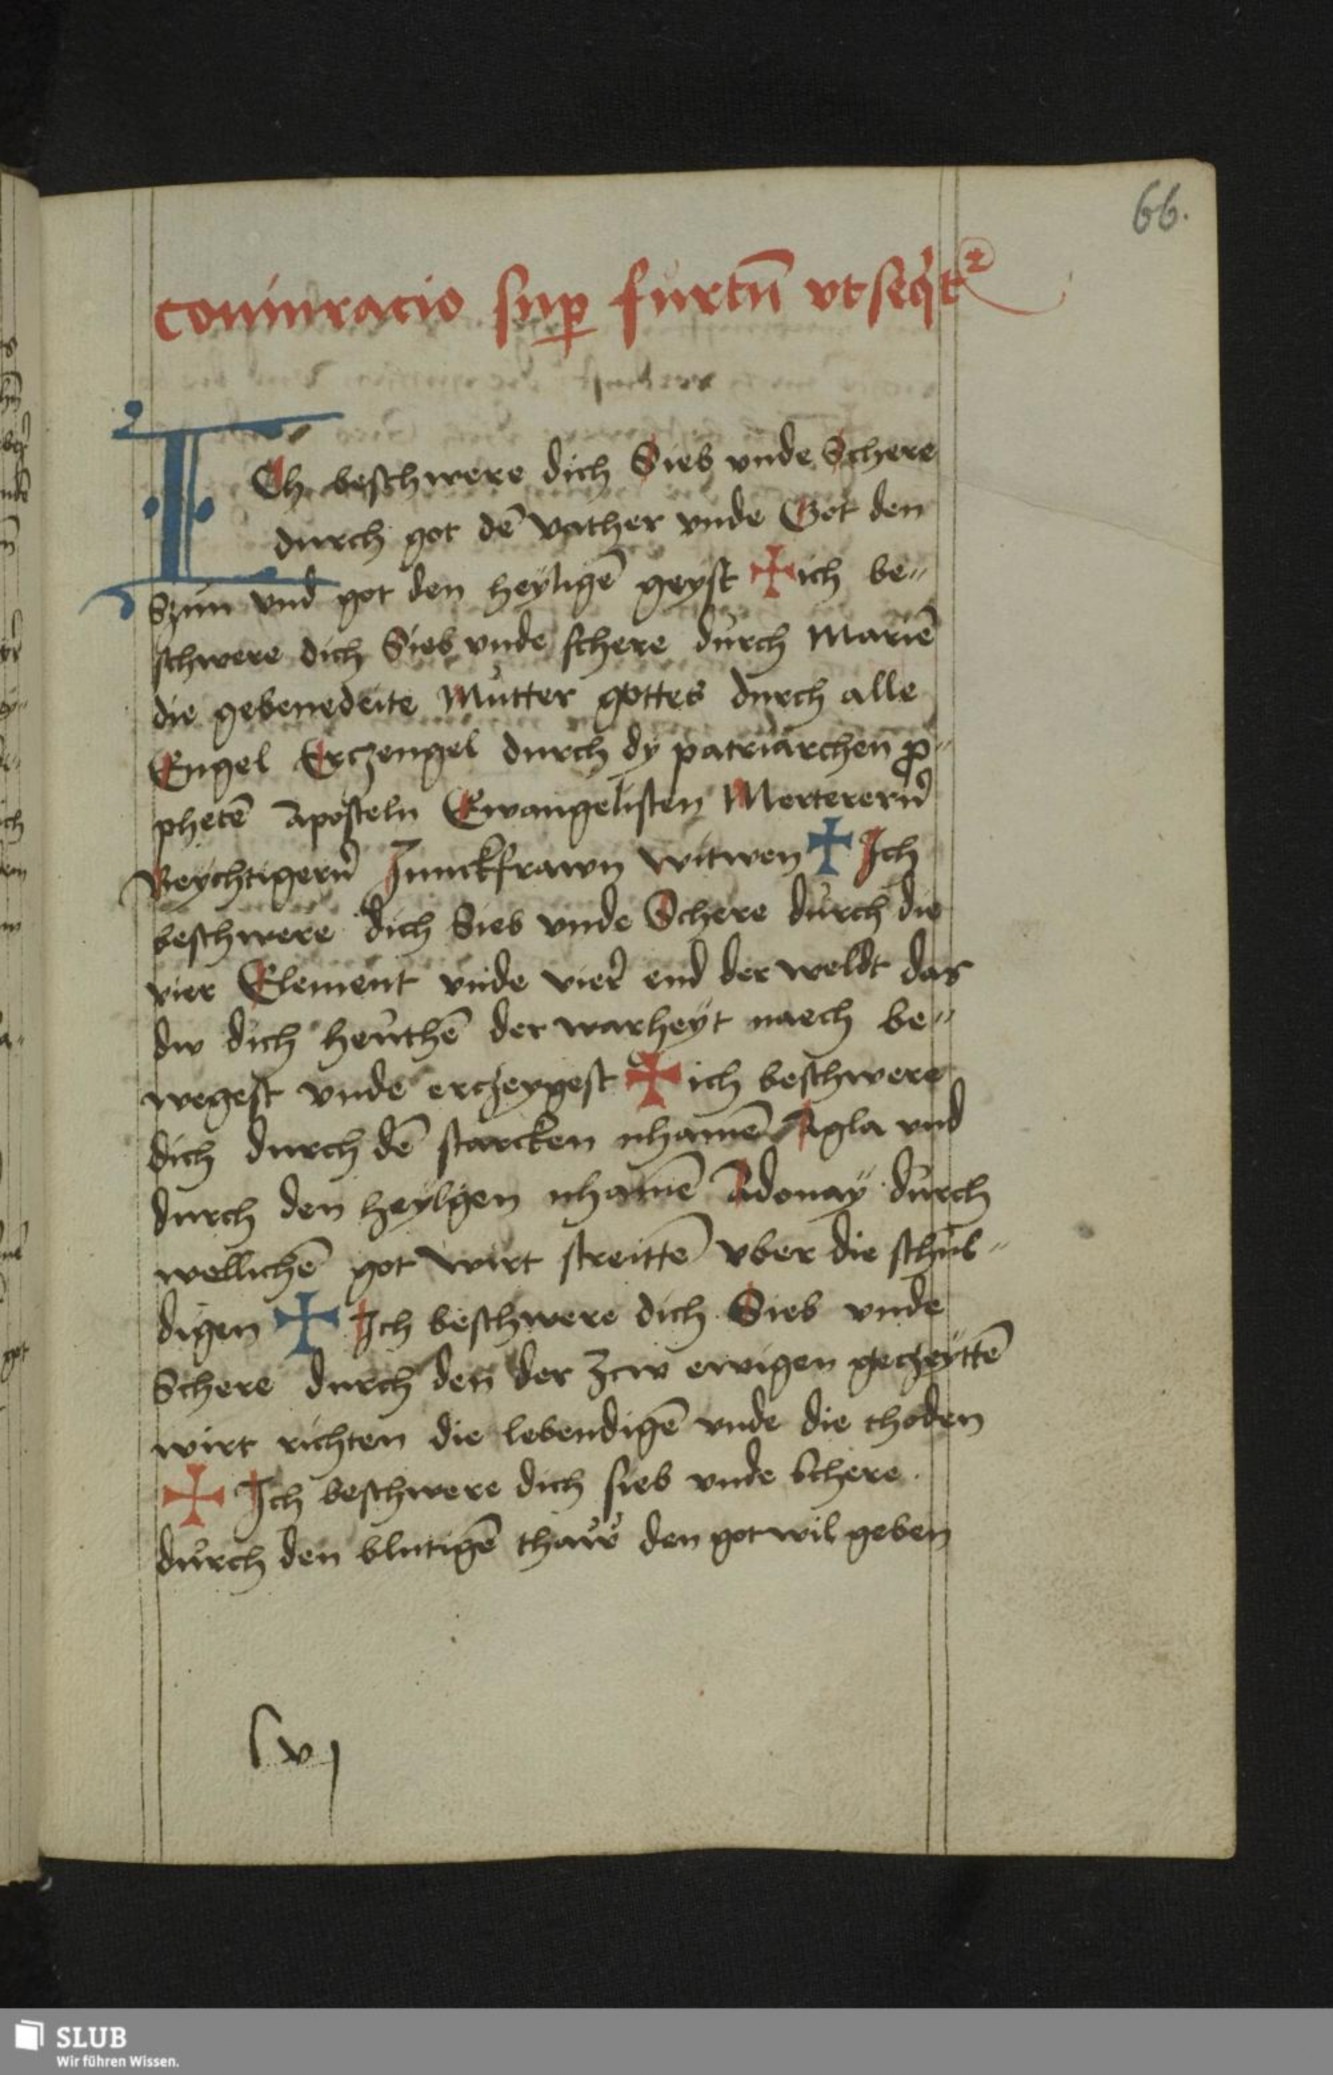 66.
coniuracio sup furtū vt seqͥt᷑
ICh beschwere dich Sieb vnde Schere
durch got dē vather vnde Got den
Szun vnd got den heyligē geyst ✠ ich be⸗
schwere dich Sieb vnde schere durch Mariē
die gebenedeite Mutter gottes durch alle
Engel Erczengel durch dy patriarchen ꝓ⸗
phetē Aposteln Ewangelisten Mertererñ
Beychtigerñ Junckfrawn witwen ✠ Ich
beschwere dich Sieb vnde Schere durch die
vier Element vnde vier end der weldt das
dw dich heuthē der warheyt naech be⸗
wegest vnde erczeygest ✠ ich beschwere
dich durch dē starcken nhamē Agla vnd
durch den heylgen nhamē Adonaÿ durch
wellichē got wirt streittē vber die schul⸗
digen ✠ Ich beschwere dich Sieb vnde
Schere durch den der zcw ewigen geczeyttē
wirt richten die lebendigē vnde die thoden
✠ Ich beschwere dich sieb vnde Schere
durch den blutigē thaw den got wil geben
lvj
SLUB
Wir führen Wissen.